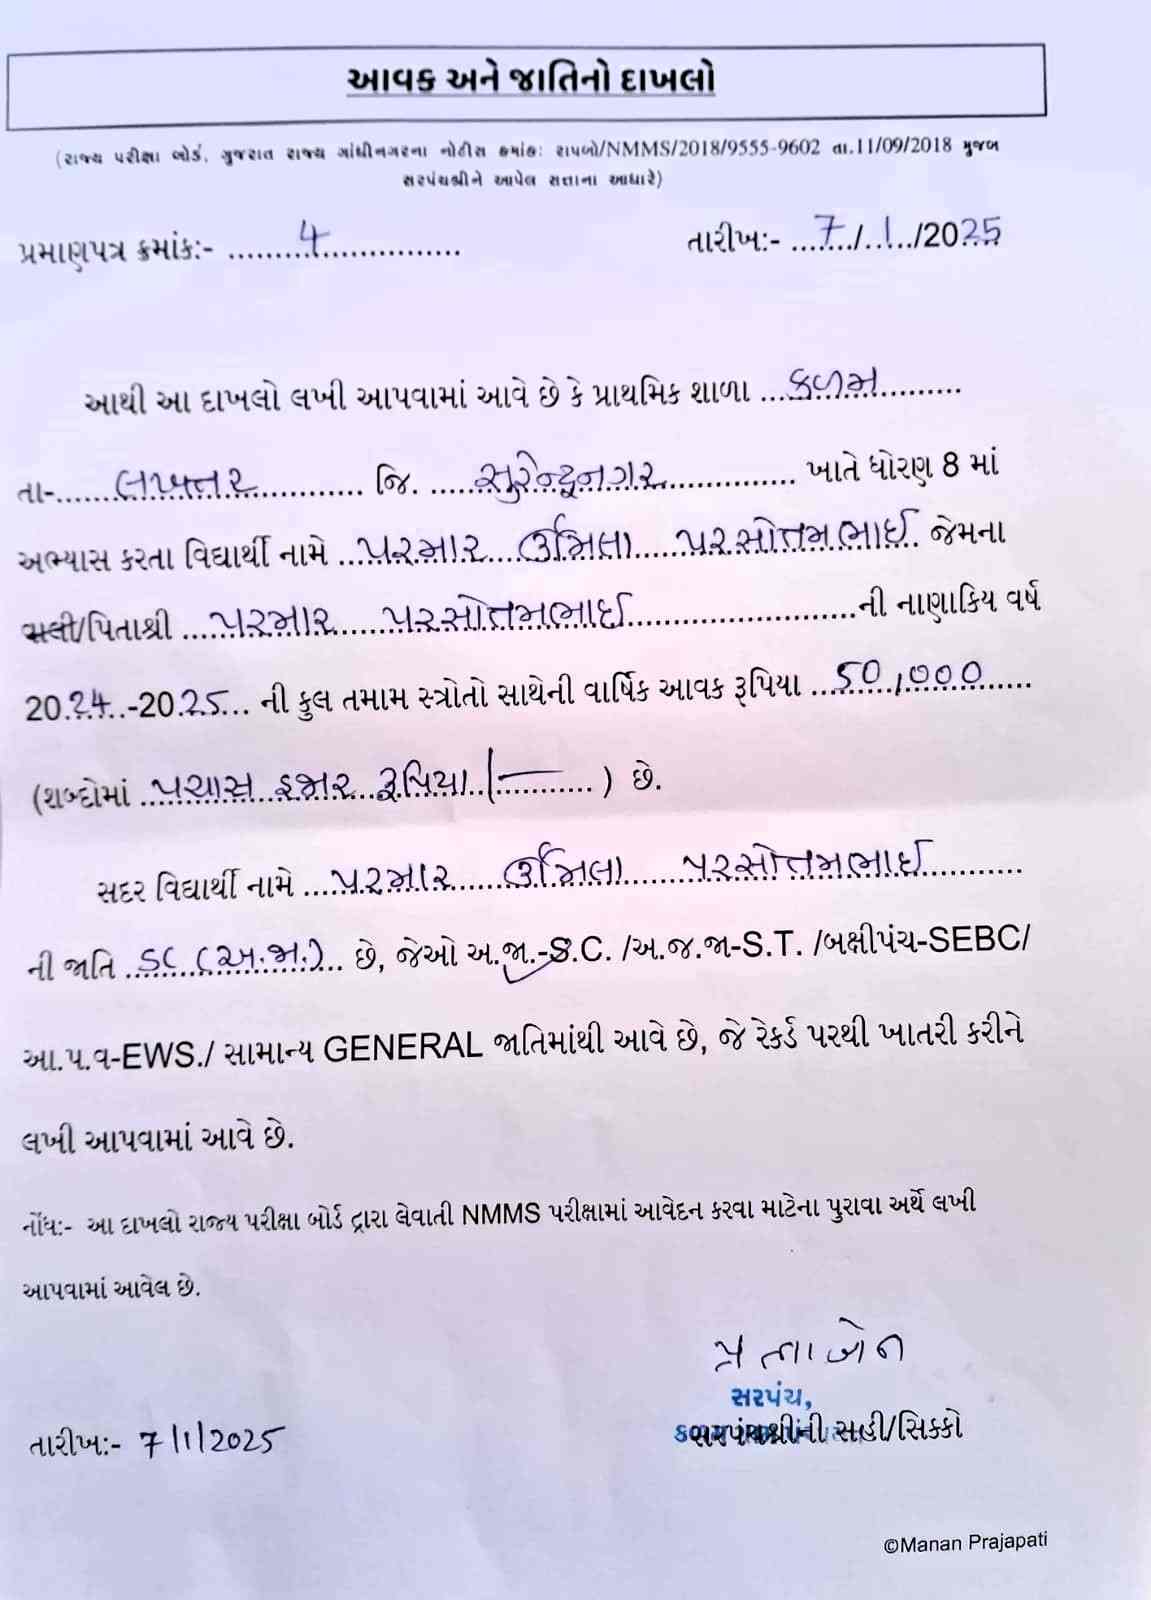 આવક અને જાતિનો દાખલો
(રાજ્ય પરીક્ષા બોર્ડ, ગુજરાત રાજ્ય ગાંધીનગરના નોટીસ ક્રમાંક: રાપબો/NMMS/2018/9555-9602 તા.11/09/2018 મુજબ
સરપંચશ્રીને આપેલ સત્તાના આધારે)
પ્રમાણપત્ર ક્રમાંક:- 4 તારીખ:- 7/1/2025
આથી આ દાખલો લખી આપવામાં આવે છે કે પ્રાથમિક શાળા કળમ
તા- લખતર જિ. સુરેન્દ્રનગર ખાતે ધોરણ 8 માં
અભ્યાસ કરતા વિદ્યાર્થી નામે પરમાર ઉર્મિલા પરસોતમભાઈ જેમના
વાલી/પિતાશ્રી પરમાર પરસોતમભાઈ ની નાણાકિય વર્ષ
2024-2025 ની કુલ તમામ સ્ત્રોતો સાથેની વાર્ષિક આવક રૂપિયા 50,000
(શબ્દોમાં પચાસ હજાર રૂપિયા/—) છે.
સદર વિદ્યાર્થી નામે પરમાર ઉર્મિલા પરસોતમભાઈ
ની જાતિ SC (અ.જા.) છે, જેઓ અ.જા.-S.C. /અ.જ.જા-S.T. /બક્ષીપંચ-SEBC/
આ.પ.વ-EWS./ સામાન્ય GENERAL જાતિમાંથી આવે છે, જે રેકર્ડ પરથી ખાતરી કરીને
લખી આપવામાં આવે છે.
નોંધ:- આ દાખલો રાજ્ય પરીક્ષા બોર્ડ દ્વારા લેવાતી NMMS પરીક્ષામાં આવેદન કરવા માટેના પુરાવા અર્થે લખી
આપવામાં આવેલ છે.
સરપંચ,
તારીખ:- 7/1/2025 સરપંચશ્રીની સહી/સિક્કો
©Manan Prajapati